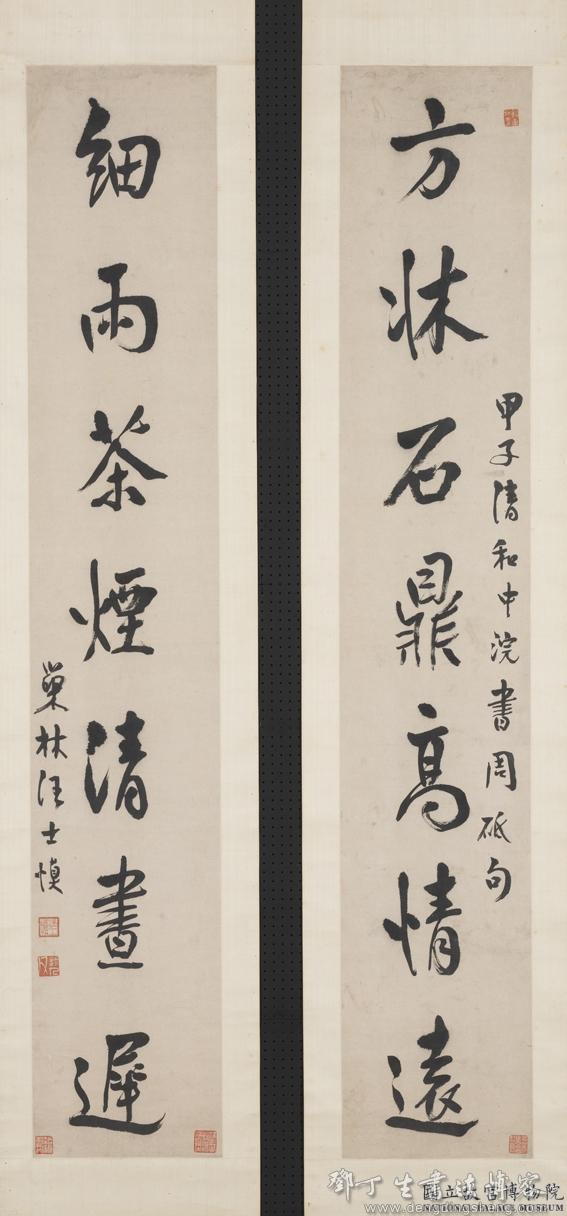 方牀石鼎高情遠
甲子清和中浣書周砥句
細雨茶煙清晝遲
巢林汪士慎
鄧丁生書法博客
www.dengdingsheng.com
國立故宮博物院
NATIONAL PALACE MUSEUM